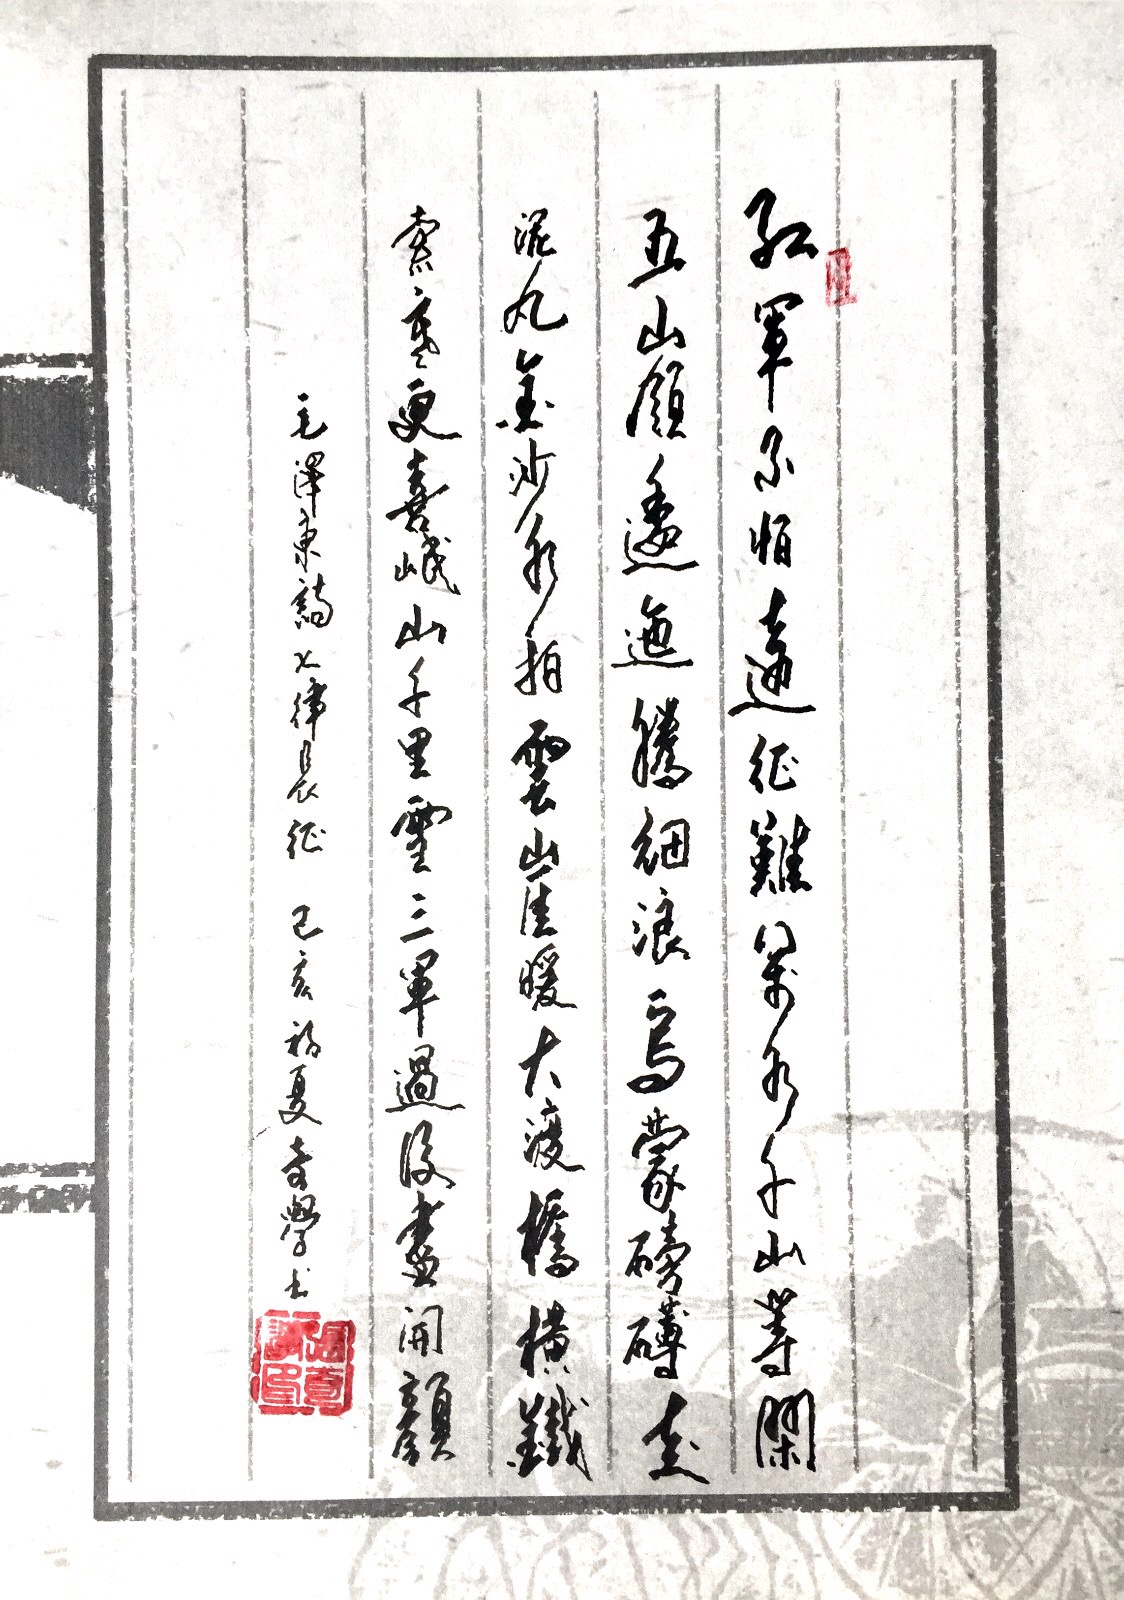 紅軍不怕遠征難萬水千山等閑
五嶺逶迤騰細浪烏蒙磅礴走
泥丸金沙水拍雲崖暖大渡橋橫鐵
索寒更喜岷山千里雪三軍過後盡開顏
毛澤東詩七律長征 己亥初夏 學书